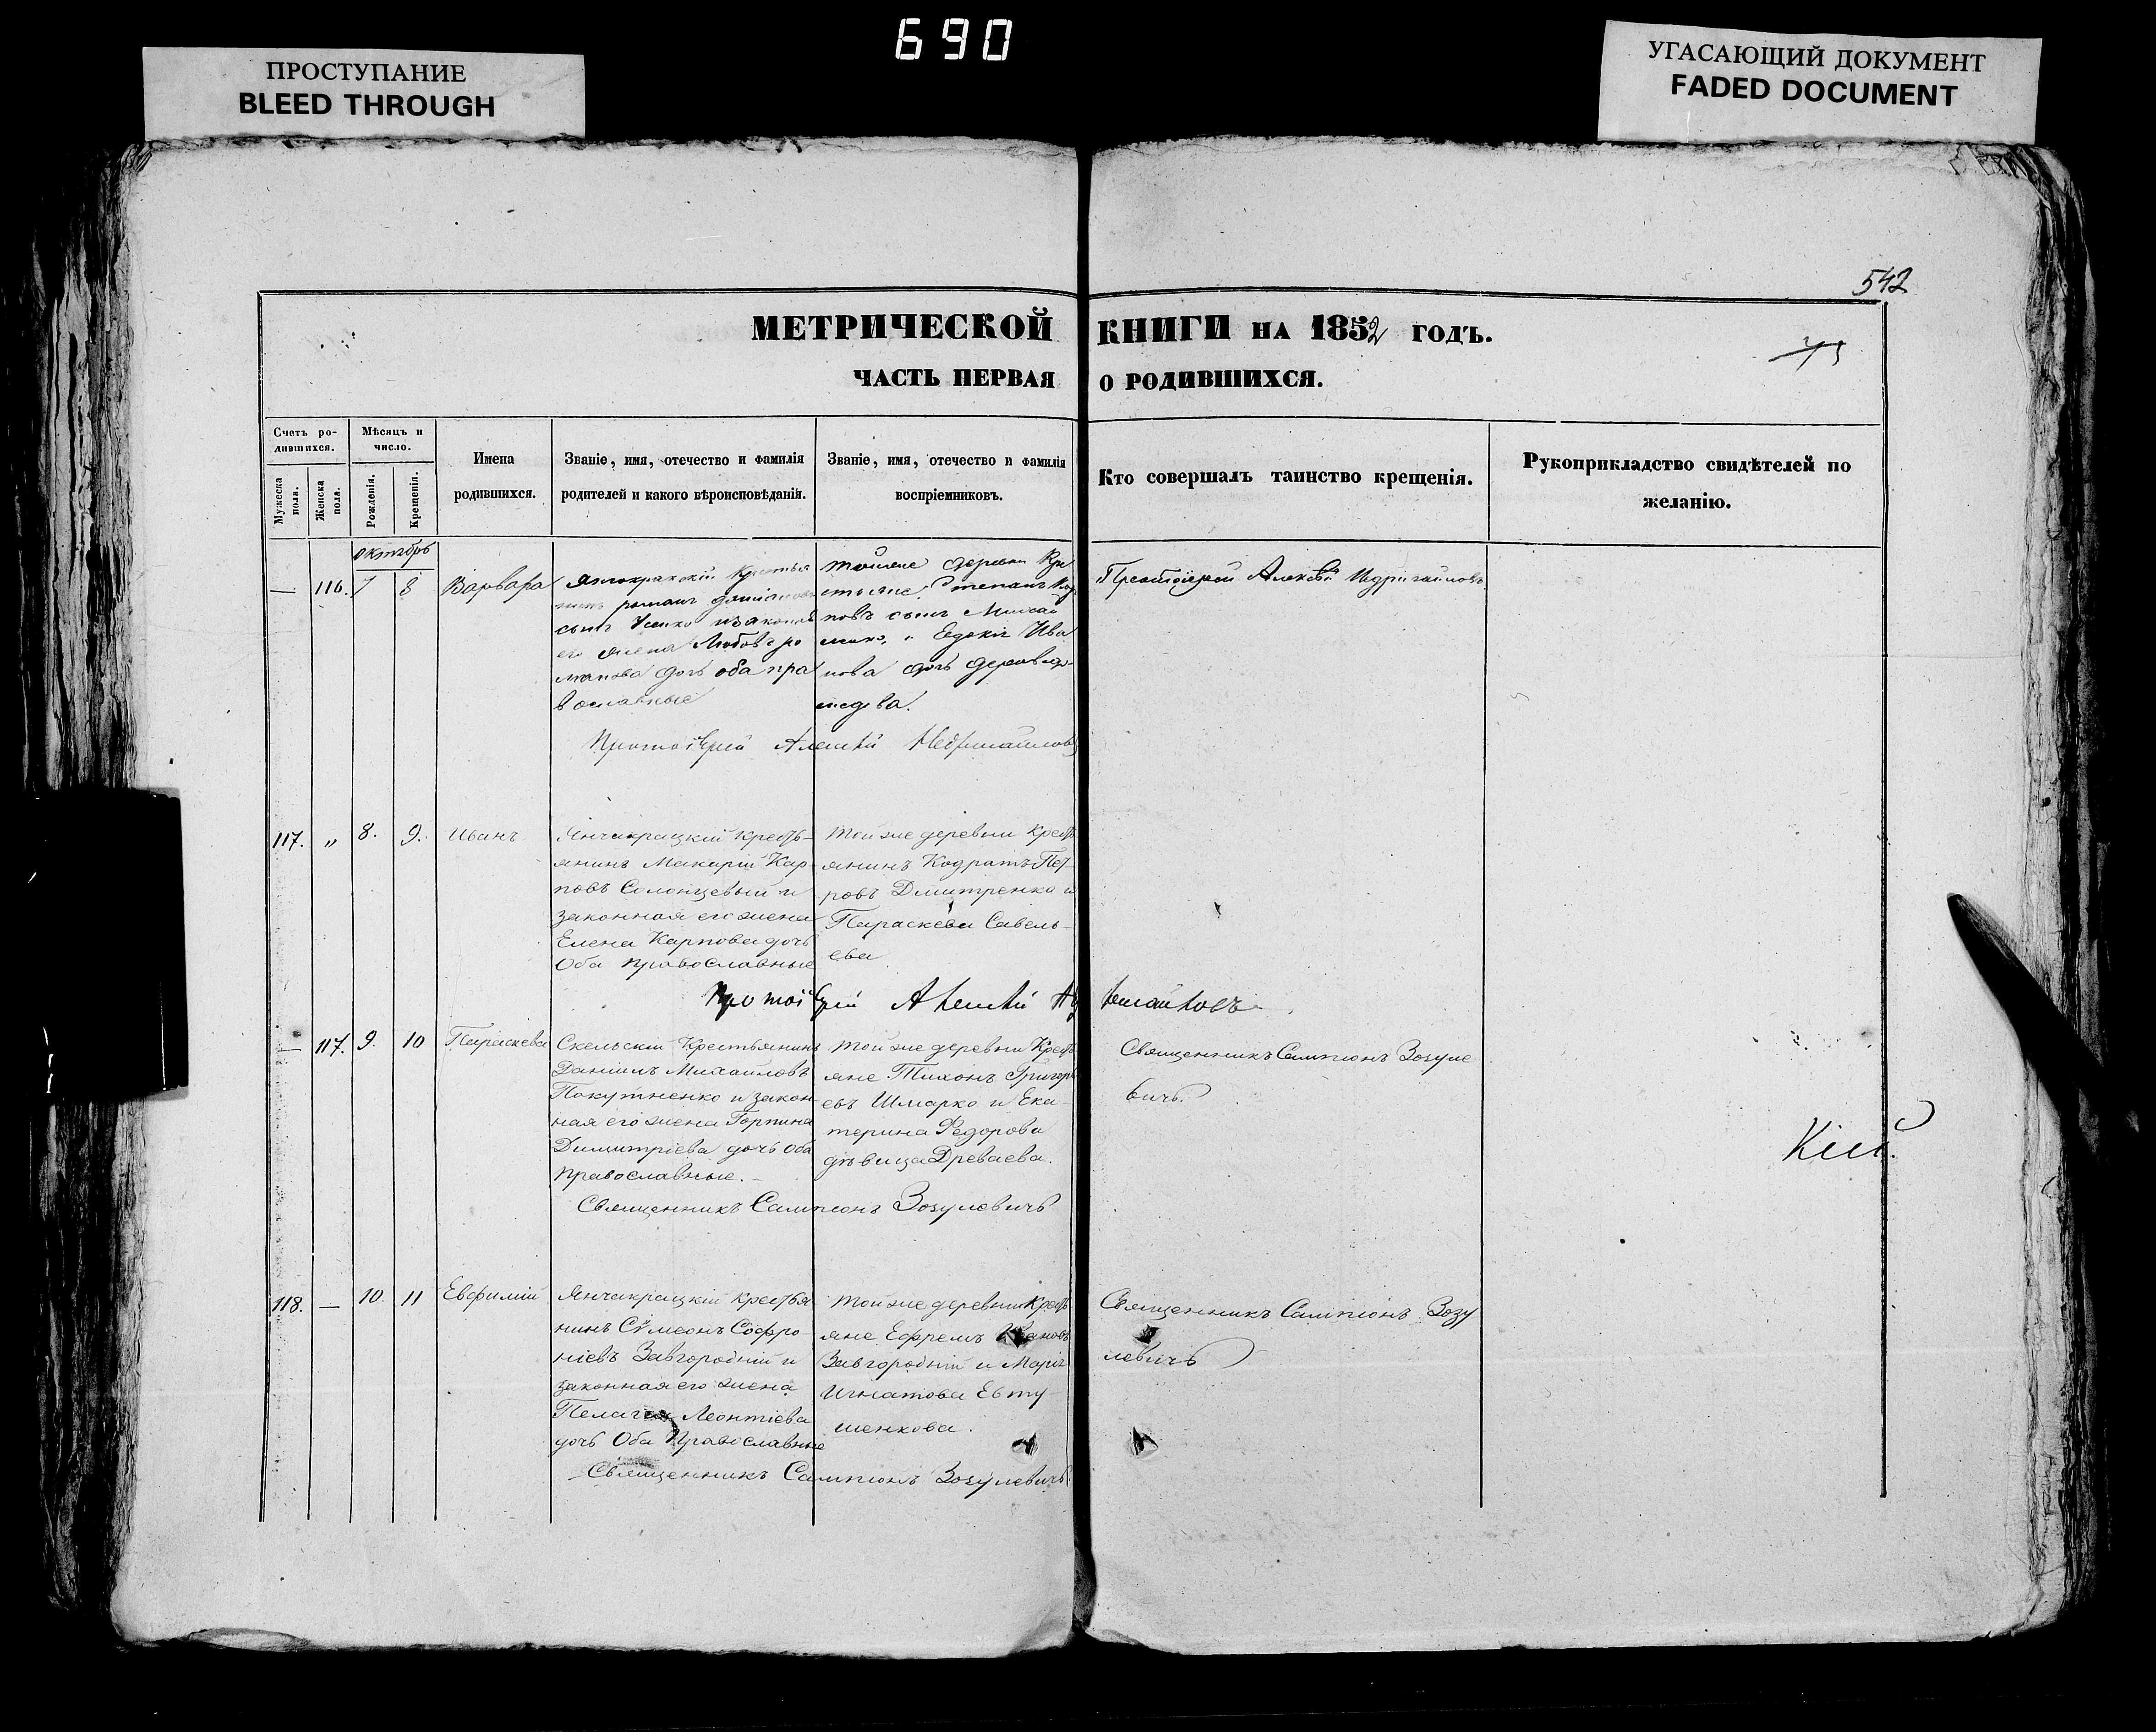 690
ПРОСТУПАНИЕ
BLEED THROUGH
УГАСАЮЩИЙ ДОКУМЕНТ
FADED DOCUMENT
542
МЕТРИЧЕСКОЙ КНИГИ НА 1852 ГОДЪ.
ЧАСТЬ ПЕРВАЯ О РОДИВШИХСЯ.
Счетъ ро-
дившихся.
Мужеска
пола.
Женска
пола.
Мѣсяцъ и
число.
Рожденія.
Крещенія.
Имена
родившихся.
Званіе, имя, отечество и фамилія
родителей и какого вѣроисповѣданія.
Званіе, имя, отечество и фамилія
воспріемниковъ.
Кто совершалъ таинство крещенія.
Рукоприкладство свидѣтелей по
желанію.
октябрь
— 116. 7 8 Варвара
сынъ Усенко
его жена Любовь ро
манова дочь оба пра
вославные
тойже деревни Кре
стьяне Степанъ
повъ сынъ
и Евдокія Ива
нова дочь
Протоіерей Алексѣй
Протоіерей Алексѣй
117. „ 8. 9. Иванъ
Янчикрацкій Кресть-
янинъ Макарій Кар-
повъ Солонцевый и
законная его жена
Елена Карпова дочь
Оба православные
Той же деревни Крест
янинъ Кодратъ Пет-
ровъ Дмитренка и
Параскева Савель-
ева
Протоіерей Алексѣй
— 117. 9. 10 Параскева
Скельскій Крестьянинъ
Даніилъ Михайловъ
Покутненко и закон
ная его жена Горпина
Димитріева дочь Оба
православные. –
Той же деревни Крест
яне Тихонъ Григорь
евъ Шмарко и Ека-
терина Федорова
дѣвица Древаева.
Священникъ Сампсонъ Зозуле
вичъ.
Священникъ Сампсонъ Зозулевичъ
Кіи.
118. — 10. 11 Евфимій
Янчикрацкій Крестья
нинъ Сѵмеонъ Софро-
ніевъ Завгородній и
законная его жена
Пелагея Леонтіева
дочь Оба Православные
Той же деревни Крест
яне Ефремъ Ивановъ
Завгородній и Марія
Игнатова Евту-
шенкова.
Священникъ Сампсонъ Зозу
левичъ
Священникъ Сампсонъ Зозулевичъ.